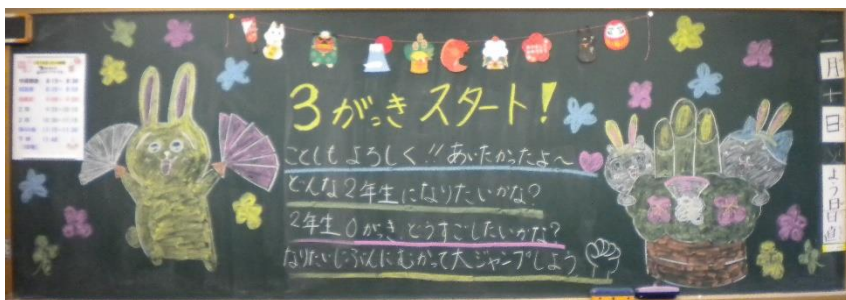 3がっき スタート!
ことしも よろしく!! あいたかったよ〜
どんな2年生になりたいかな?
2年生0がっき、どうすごしたいかな?
なりたいじぶんにむかって大ジャンプしよう
一月十日
よう日
日直